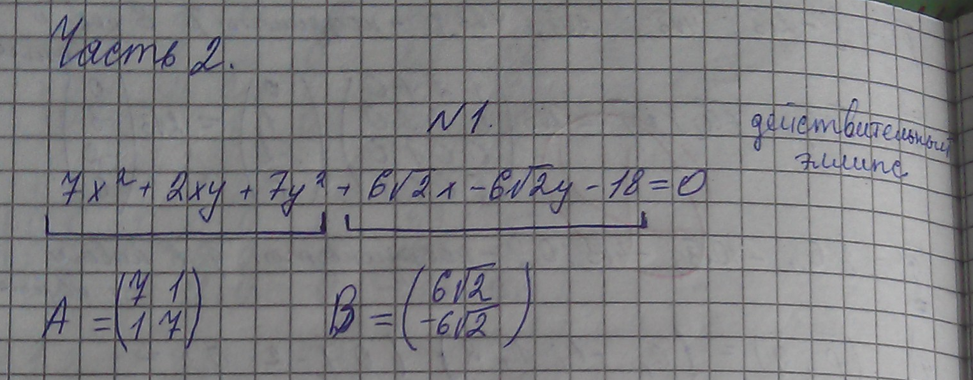 Часть 2.
N1.
действительный
эллипс
7x² + 2xy + 7y² + 6√2x - 6√2y - 18 = 0
A = (7 1
1 7)
B = (6√2
-6√2)